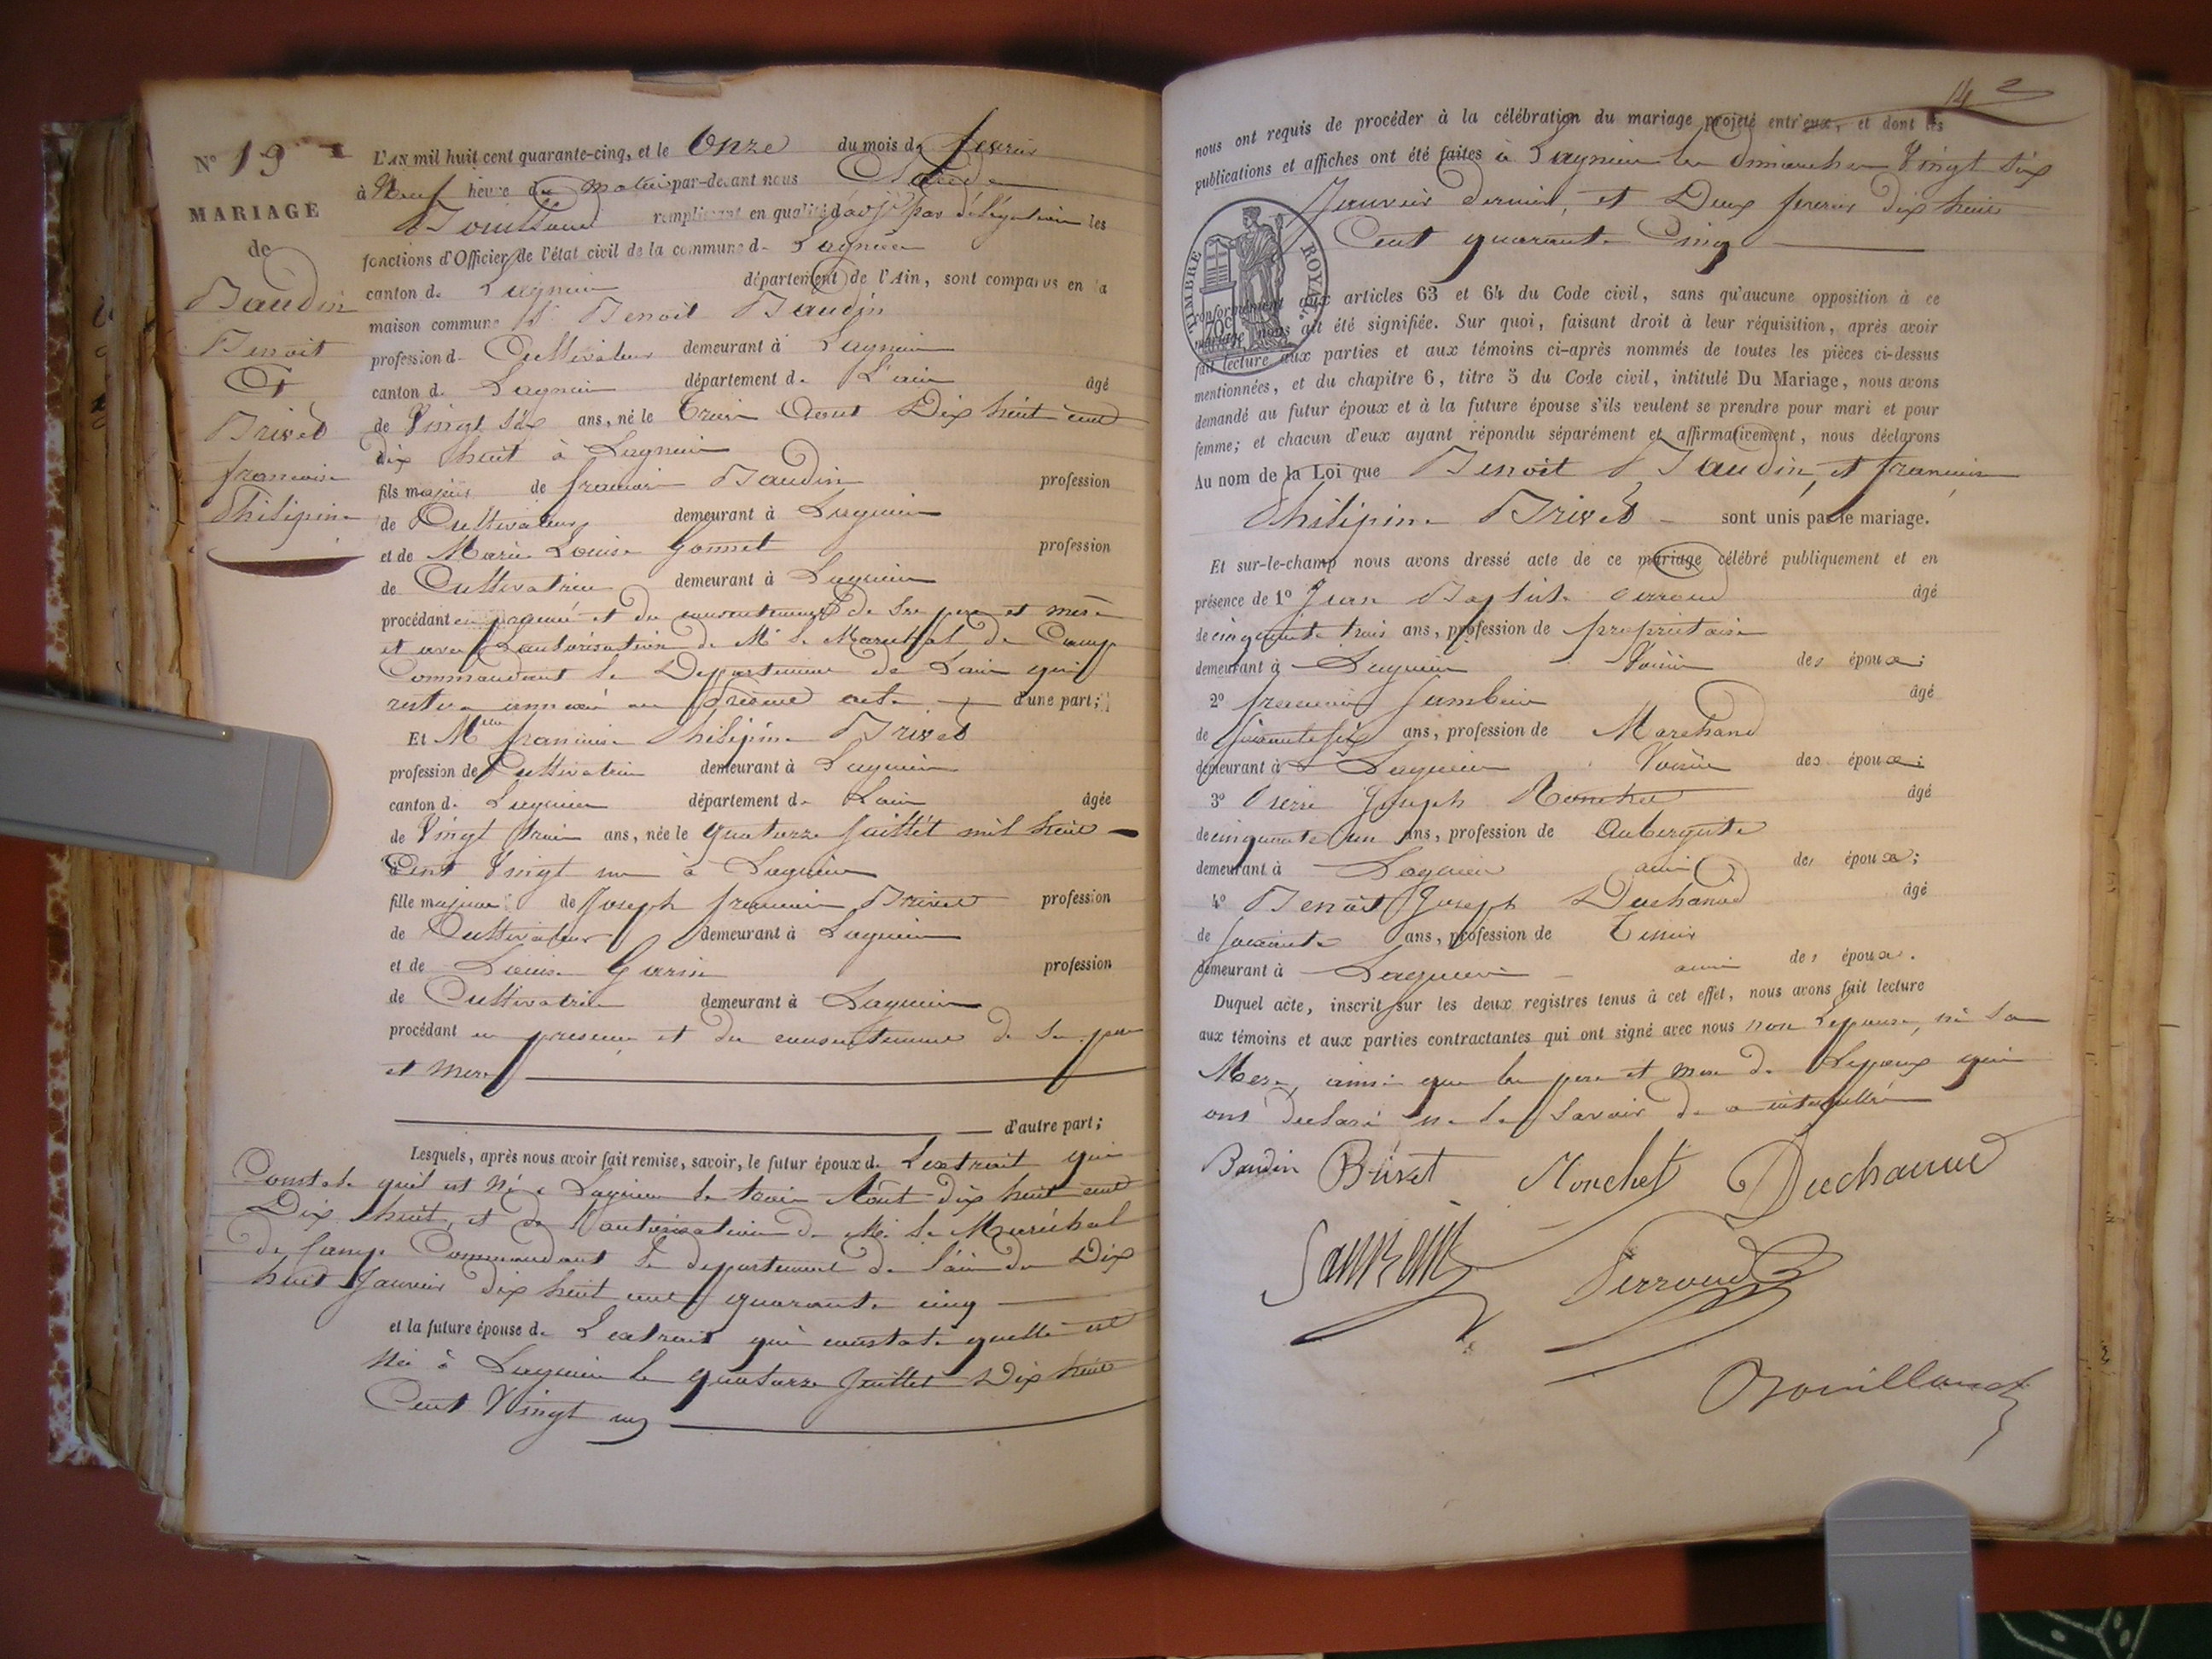 N° 19
MARIAGE
de
Baudin
Benoit
Et
Brivet
francoise
Philipine
L'AN mil huit cent quarante-cinq, et le Onze du mois de fevrier
à Neuf heure du matin par-devant nous Claude
Bouilloud remplissant en qualité d'adjt par délégation les
fonctions d'Officier de l'état civil de la commune de Lagnieu
canton de Lagnieu département de l'Ain, sont comparus en la
maison commune Sr Benoit Baudin
profession de Cultivateur demeurant à Lagnieu
canton de Lagnieu département de L'ain âgé
de Vingt six ans, né le trois Aout Dix huit cent
dix huit à Lagnieu
fils majeur de francois Baudin profession
de Cultivateur demeurant à Lagnieu
et de Marie Louise Gonnet profession
de Cultivatrice demeurant à Lagnieu
procédant en présence et du consentement de ses pere et mère
et avec Lautorisation de Mr Le Marechal de Camp
Commandant le Departement de Lain qui
restera annexé au présent acte d'une part;
Et Melle francoise Philipine Brivet
profession de Cultivatrice demeurant à Lagnieu
canton de Lagnieu département de Lain âgée
de Vingt trois ans, née le quatorze juillet mil huit
Cent Vingt un à Lagnieu
fille majeure de Joseph francois Brivet profession
de Cultivateur demeurant à Lagnieu
et de Louise Garin profession
de Cultivatrice demeurant à Lagnieu
procédant en presence et du consentement de ses pere
et mere
d'autre part;
Lesquels, après nous avoir fait remise, savoir, le futur époux de Lextrait qui
Constate quil est né a Lagnieu le trois Aout dix huit cent
Dix huit, et de l'autorisation de Mr le Maréchal
de Camp Commandant le departement de l'ain du Dix
huit Janvier dix huit cent quarante cinq
et la future épouse de Lextrait qui constate quelle est
née à Lagnieu le quatorze Juillet Dix huit
Cent Vingt un
nous ont requis de procéder à la célébration du mariage projeté entr'eux, et dont les
publications et affiches ont été faites à Lagnieu les dimanches Vingt six
Janvier dernier, et Deux fevrier dix huit
Cent quarante Cinq
TIMBRE ROYAL
70c
conformément aux articles 63 et 64 du Code civil, sans qu'aucune opposition à ce
mariage nous ait été signifiée. Sur quoi, faisant droit à leur réquisition, après avoir
fait lecture aux parties et aux témoins ci-après nommés de toutes les pièces ci-dessus
mentionnées, et du chapitre 6, titre 5 du Code civil, intitulé Du Mariage, nous avons
demandé au futur époux et à la future épouse s'ils veulent se prendre pour mari et pour
femme; et chacun d'eux ayant répondu séparément et affirmativement, nous déclarons
Au nom de la Loi que Benoit Baudin, et francoise
Philipine Brivet sont unis par le mariage.
Et sur-le-champ nous avons dressé acte de ce mariage célébré publiquement et en
présence de 1° Jean Baptiste Perroud âgé
de cinquante trois ans, profession de propriétaire
demeurant à Lagnieu Voisin des époux;
2° francois Jambein âgé
de soixante six ans, profession de Marchand
demeurant à Lagnieu Voisin des époux;
3° Pierre Joseph Ronchet âgé
de cinquante un ans, profession de Aubergiste
demeurant à Lagnieu ami des époux;
4° Benoit Joseph Duchand âgé
de soixante ans, profession de Tissier
demeurant à Lagnieu ami des époux.
Duquel acte, inscrit sur les deux registres tenus à cet effet, nous avons fait lecture
aux témoins et aux parties contractantes qui ont signé avec nous non Lepouse, ni sa
Mere, ainsi que les pere et mere de Lepoux qui
ont declaré ne le savoir de ce interpellés
Baudin Brivet Ronchet Duchanne
Perroud
Bouilloud